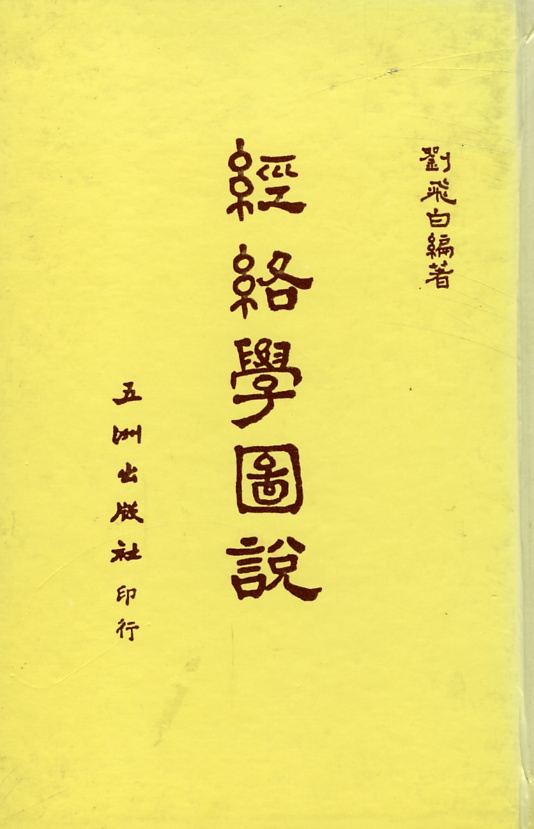 劉飛白編著
經絡學圖說
五洲出版社印行